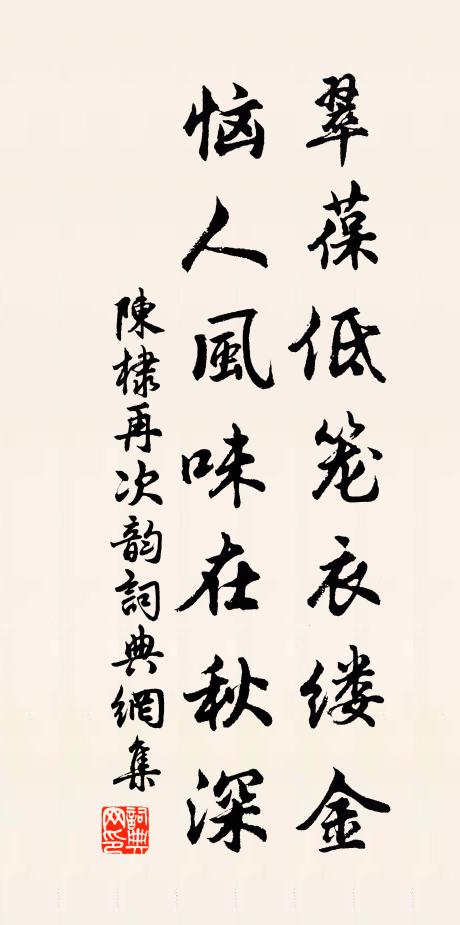 翠葆低笼衣缕金
恼人風味在秋深
陳棣再次韵詞典網集
詞典网印